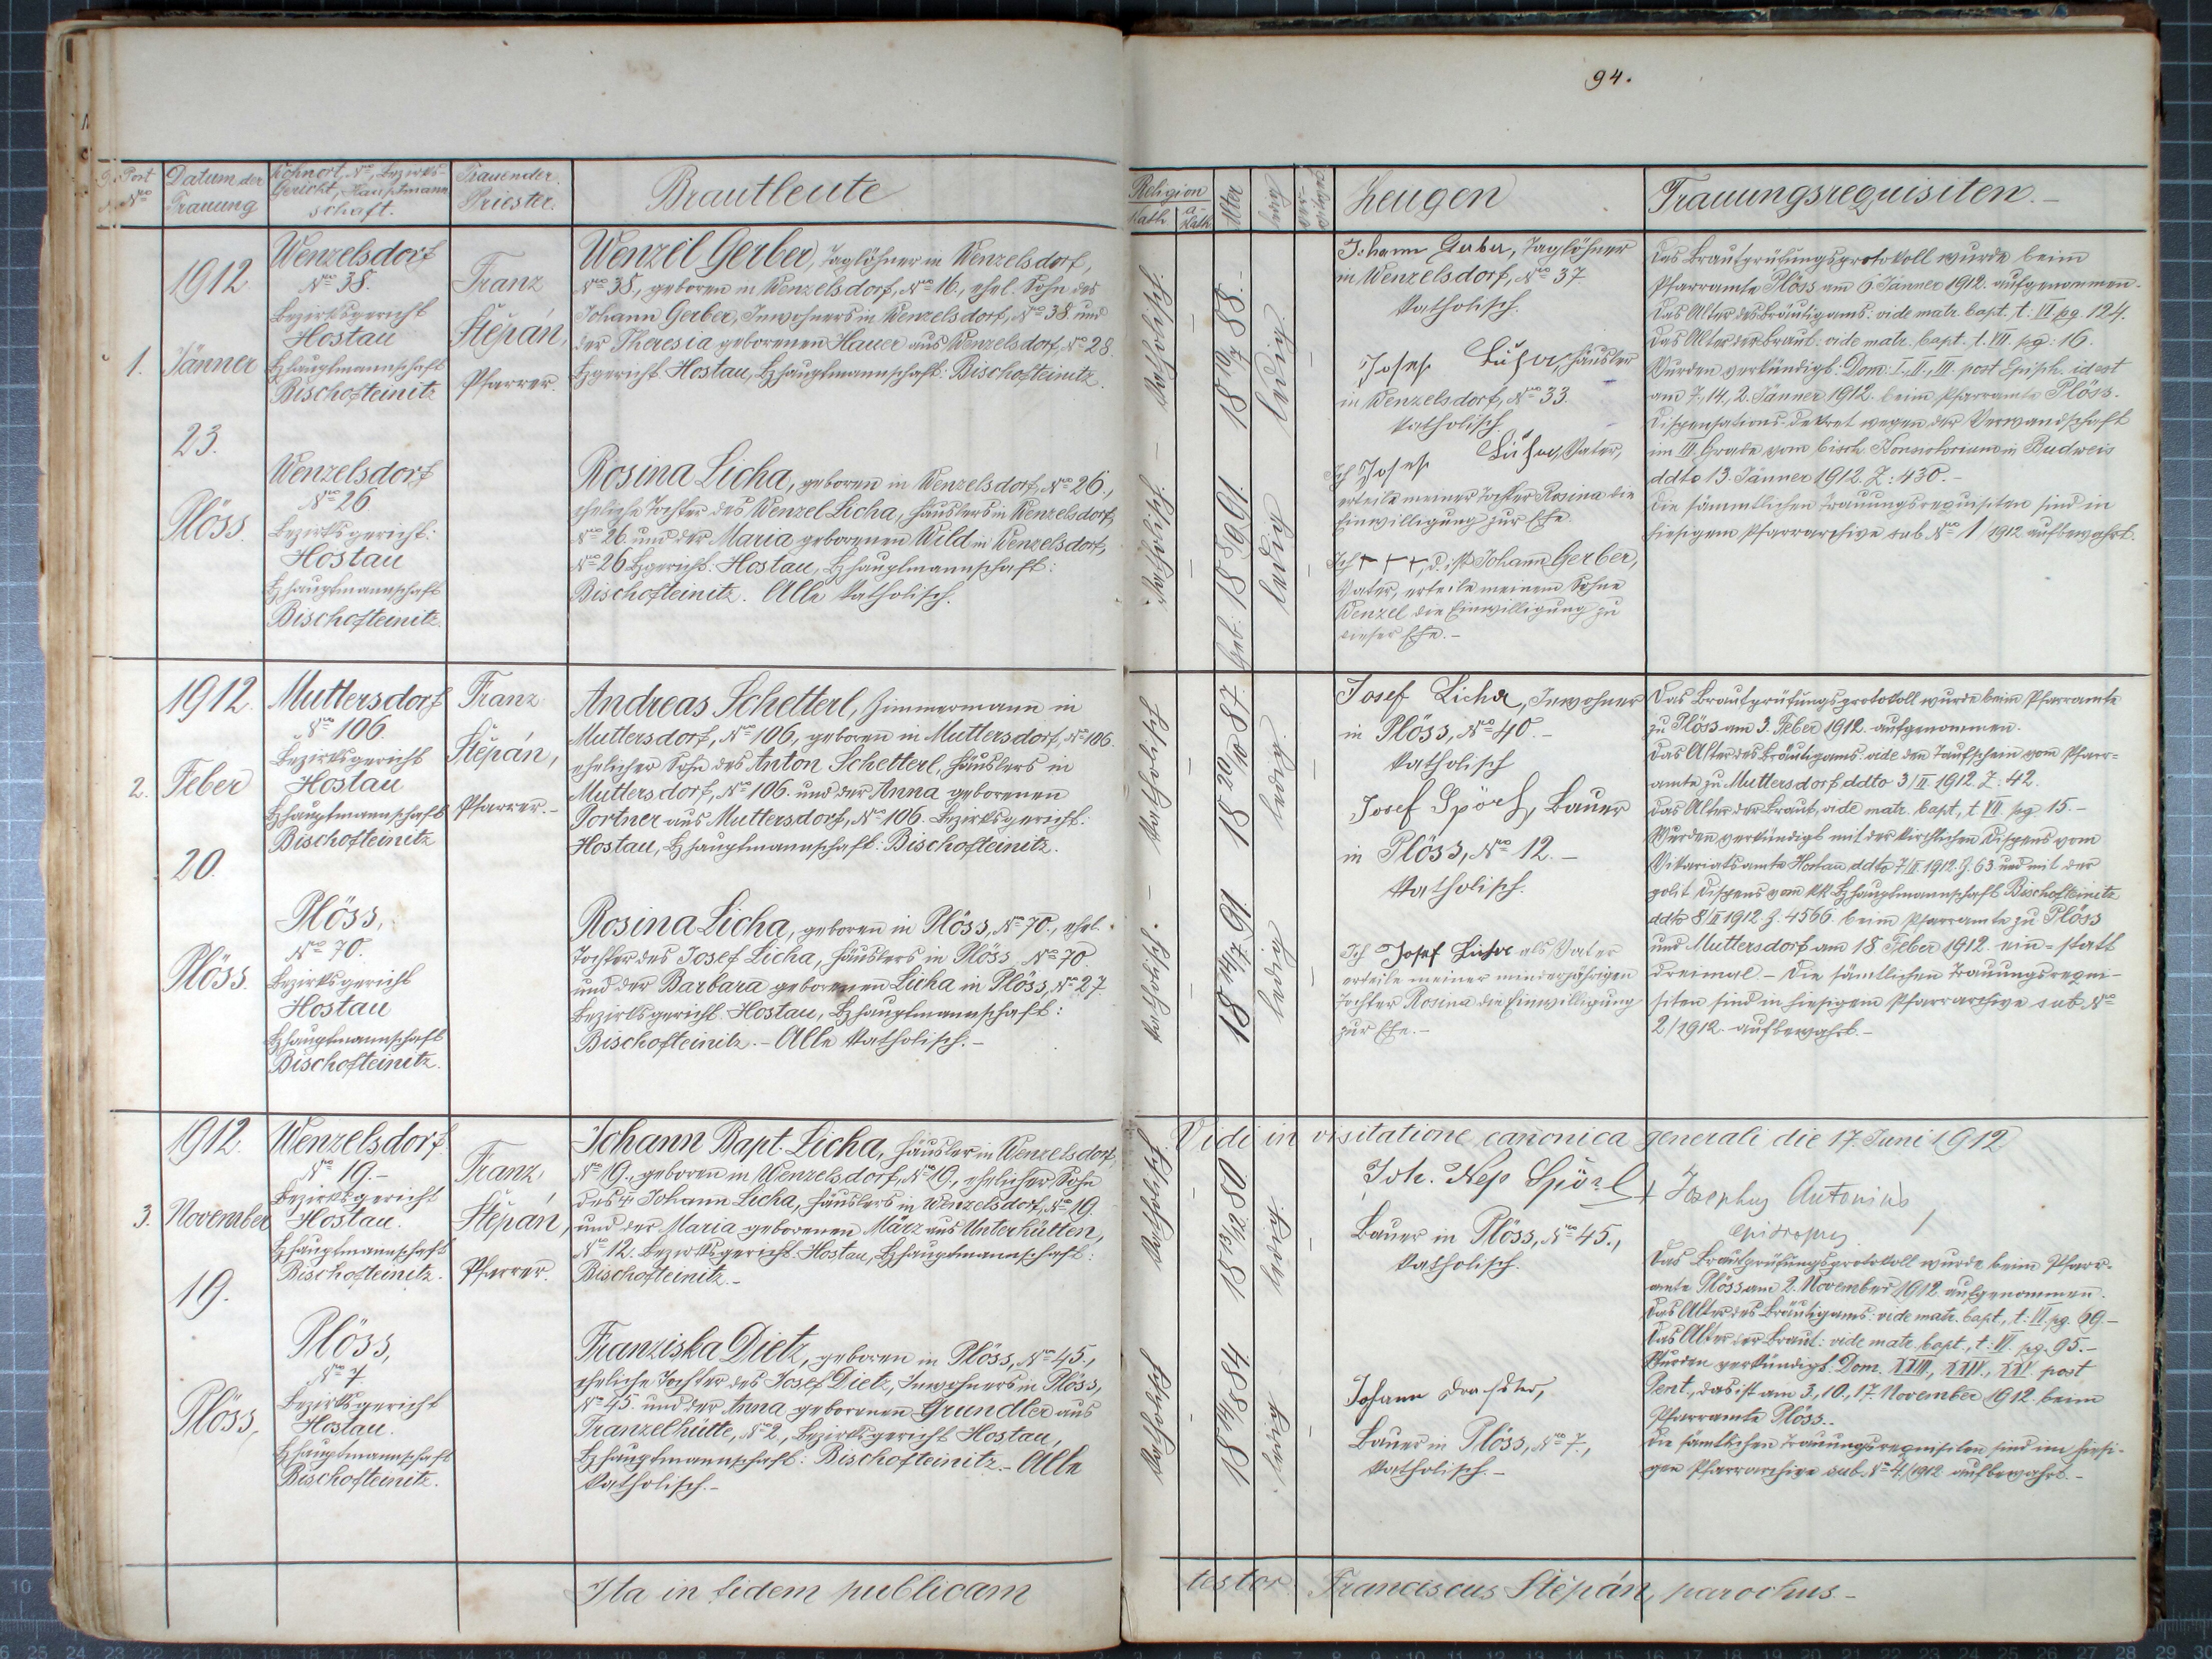 94.
Post
Nro
Datum der
Trauung
Wohnort, Nro, Bezirks-
Gericht, Hauptmann
schaft.
Trauender
Priester.
Brautleute
Religion
Kath.
a-
Kath
Alter
ledig
ver-
witwet
Zeugen
Trauungsrequisiten.-
1.
1912
Jänner
23.
Plöss.
Wenzelsdorf
Nro 38.
Bezirksgericht
Hostau
Bzhauptmannschaft
Bischofteinitz
Wenzelsdorf
Nro 26
Bezirksgericht:
Hostau
Bzhauptmannschaft
Bischofteinitz.
Franz
Štěpán,
Pfarrer.
Wenzel Gerber, Taglöhner in Wenzelsdorf,
Nro 38., geboren in Wenzelsdorf, Nro 16., ehel. Sohn des
Johann Gerber, Inwohners in Wenzelsdorf, Nro 38. und
der Theresia geborenen Hauer aus Wenzelsdorf, Nro 28
Bzgericht Hostau, Bzhauptmannschaft: Bischofteinitz.
Rosina Licha, geboren in Wenzelsdorf, Nro 26.,
eheliche Tochter des Wenzel Licha, Häuslers in Wenzelsdorf,
Nro 26. und der Maria geborenen Wild in Wenzelsdorf,
Nro 26 Bzgericht: Hostau, Bzhauptmannschaft:
Bischofteinitz. Alle katholisch.
katholisch. - katholisch.
18 10/7 88.-
Geb: 18 91.
ledig.
ledig
Johann Gerber, Taglöhner
in Wenzelsdorf, Nro 37
katholisch.
Josef Häusler
in Wenzelsdorf, Nro 33.
katholisch.
Ich Josef Vater,
erteile meiner Tochter Rosina die
Einwilligung zur Ehe.
Ich + + +, d. ist Johann Gerber,
Vater, erteile meinem Sohne
Wenzel die Einwilligung zu
dieser Ehe.-
Das Brautprüfungsprotokoll wurde beim
Pfarramte Plöss am 6 Jänner 1912. aufgenommen.
Das Alter des Bräutigams: vide matr. bapt. t: VI pg. 124.
Das Alter der Braut: vide matr. bapt. t. VII. pg: 16.
Wurden verkündigt: Dom: I., II., III. post Epiph. id est
am 7., 14., 2. Jänner 1912. beim Pfarramte Plöss.
Dispensations-Dekret wegen der Verwandschaft
im III Grade vom bisch. Konsistorium in Budweis
ddto 13. Jänner 1912. Z: 430.-
Die sämmtlichen Trauungsrequisiten sind in
hiesigem Pfarrarchive sub Nro 1/1912 aufbewahrt.
2.
1912.
Feber
20.
Plöss.
Muttersdorf
Nro 106.
Bezirksgericht
Hostau
Bzhauptmannschaft
Bischofteinitz
Plöss,
Nro 70.
Bezirksgericht
Hostau
Bzhauptmannschaft
Bischofteinitz.
Franz
Štěpán,
Pfarrer.-
Andreas Schetterl, Zimmermann in
Muttersdorf, Nro 106, geboren in Muttersdorf, Nro 106.
ehelicher Sohn des Anton Schetterl, Häuslers in
Muttersdorf, Nro 106. und der Anna geborenen
Portner aus Muttersdorf, Nro 106. Bezirksgericht:
Hostau, Bzhauptmannschaft: Bischofteinitz.
Rosina Licha, geboren in Plöss, Nro 70., ehel.
Tochter des Josef Licha, Häuslers in Plöss, Nro 70.
und der Barbara geborenen Licha in Plöss, Nro 27.
Bezirksgericht Hostau, Bzhauptmannschaft:
Bischofteinitz.- Alle katholisch.-
katholisch - katholisch.
18 20/10 87.
18 14/7 91
ledig.
ledig
Josef Licha, Inwohner
in Plöss, Nro 40.-
katholisch
Josef Spörl, Bauer
in Plöss, Nro 12.-
katholisch.
Ich Josef Licha als Vater
erteile meiner minderjährigen
Tochter Rosina die Einwilligung
zur Ehe.-
Das Brautprüfungsprotokoll wurde beim Pfarramte
zu Plöss am 3. Feber 1912. aufgenommen.
Das Alter des Bräutigams: vide den Taufschein vom Pfarr-
amte zu Muttersdorf ddto 3/II 1912. Z. 42.
Das Alter der Braut, vide matr. bapt., t VII. pg. 15.-
Wurden verkündigt mit der kirchlichen Dispens vom
Vikariatsamte Hostau ddto 7/II 1912. Z. 63 und mit der
polit. Dispens vom kk Bzhauptmannschaft Bischofteinitz
ddto 8/II 1912. Z. 4566. beim Pfarramte zu Plöss
und Muttersdorf am 18. Feber 1912. ein- statt
dreimal - Die sämtlichen Trauungsrequi-
siten sind in hiesigem Pfarrarchive sub Nro
2/1912. aufbewahrt.-
3.
1912.
November
19.
Plöss,
Wenzelsdorf
Nro 19.-
Bezirksgericht
Hostau.
Bzhauptmannschaft
Bischofteinitz.
Plöss,
Nro 7
Bezirksgericht
Hostau.
Bzhauptmannschaft
Bischofteinitz.
Franz
Štěpán,
Pfarrer.
Johann Bapt. Licha, Häusler in Wenzelsdorf,
Nro 19., geboren in Wenzelsdorf, Nro 19., ehelicher Sohn
des + Johann Licha, Häuslers in Wenzelsdorf, Nro 19.
und der Maria geborenen März aus Unterhütten,
Nro 12. Bezirksgericht Hostau, Bzhauptmannschaft:
Bischofteinitz.-
Franziska Dietz, geboren in Plöss, Nro 45.,
eheliche Tochter des Josef Dietz, Inwohners in Plöss,
Nro 45. und der Anna geborenen Grundler aus
Franzelhütte, Nro 2., Bezirksgericht Hostau,
Bzhauptmannschaft: Bischofteinitz.- Alle
katholisch.-
katholisch
katholisch
18 13/12 80
18 14/8 84.
ledig.
ledig.
Vidi in visitatione canonica generali die 17. Juni 1912
+ Josephus Antonius
episcopus
Joh. Nep Spörl
Bauer in Plöss, Nro 45.,
katholisch.
Johann
Bauer in Plöss, Nro 7.,
katholisch.-
Das Brautprüfungsprotokoll wurde beim Pfarr-
amte Plöss am 2. November 1912 aufgenommen.
Das Alter des Bräutigams: vide matr. bapt., t: VI. pg. 69.-
Das Alter der Braut: vide matr. bapt., t: VI. pg. 95.-
Wurden verkündigt Dom. XXIII., XXIV., XXV. post
Pent., das ist am 3., 10., 17. November 1912. beim
Pfarramte Plöss.-
Die sämtlichen Trauungsrequisiten sind im hiesi-
gen Pfarrarchive sub. Nro 4./1912 aufbewahrt.-
Ita in fidem publicam testor Franciscus Štěpán, parochus.-